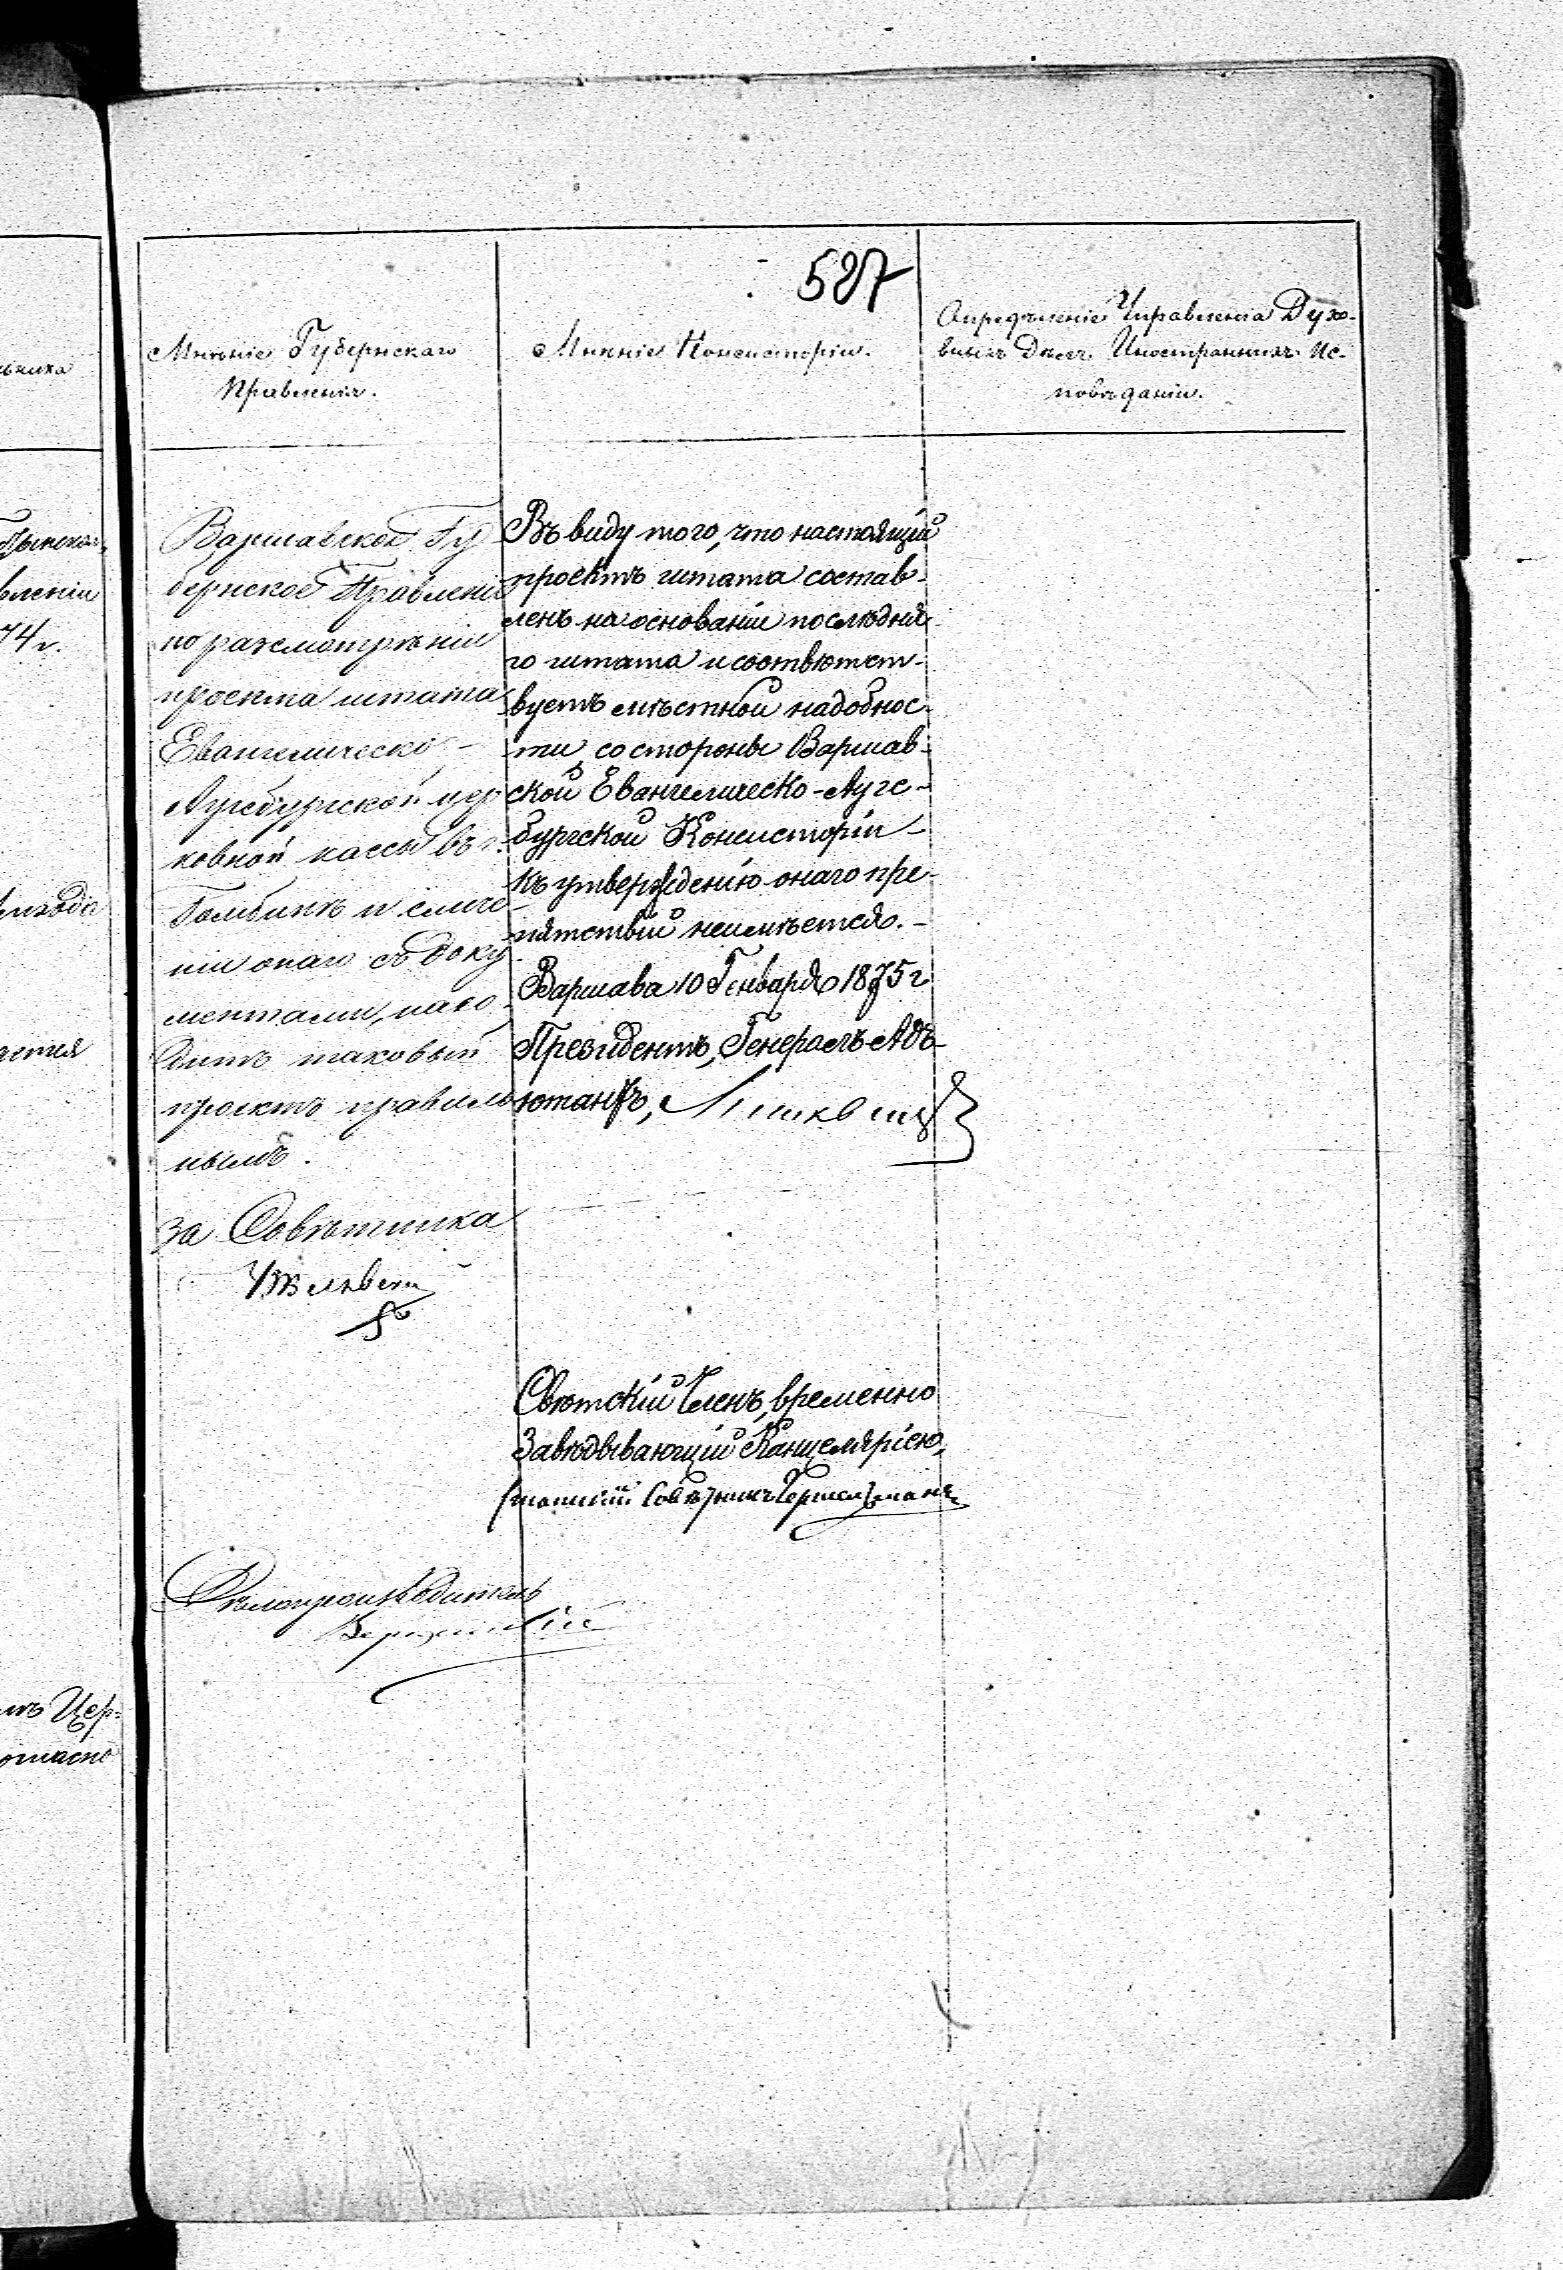 587
Мнѣніе Губернскаго
Правленія.
Мнѣніе Консисторіи.
Опредѣленіе Управленія Духо-
вныхъ Дѣлъ Иностранныхъ Ис-
повѣданіи.
Варшавское Гу
бернское Правленіе
по разсмотрѣніи
проекта штата
Евангелическо-
Аугсбургской цер
ковной кассы въ г.
Гомбинѣ и сличе
ніи онаго съ доку
ментами, нахо-
дитъ таковый
проектъ правиль
нымъ.
за Совѣтника
Дѣлопроизводитель
Въ виду того, что настоящій
проектъ штата состав-
ленъ на основаніи послѣдня-
го штата и соотвѣтст-
вуетъ мѣстной надобнос-
ти, со стороны Варшав-
ской Евангелическо-Аугс-
бургской Консисторіи
къ утвержденію онаго пре-
пятствій неимѣется.-
Варшава 10 Генваря 1875 г
Президентъ, Генералъ Адъ-
ютантъ,
Свѣтскій Членъ, временно
Завѣдывающій Канцеляріею,
Статскій Совѣтникъ
74 г.
мъ Цер-
огласно